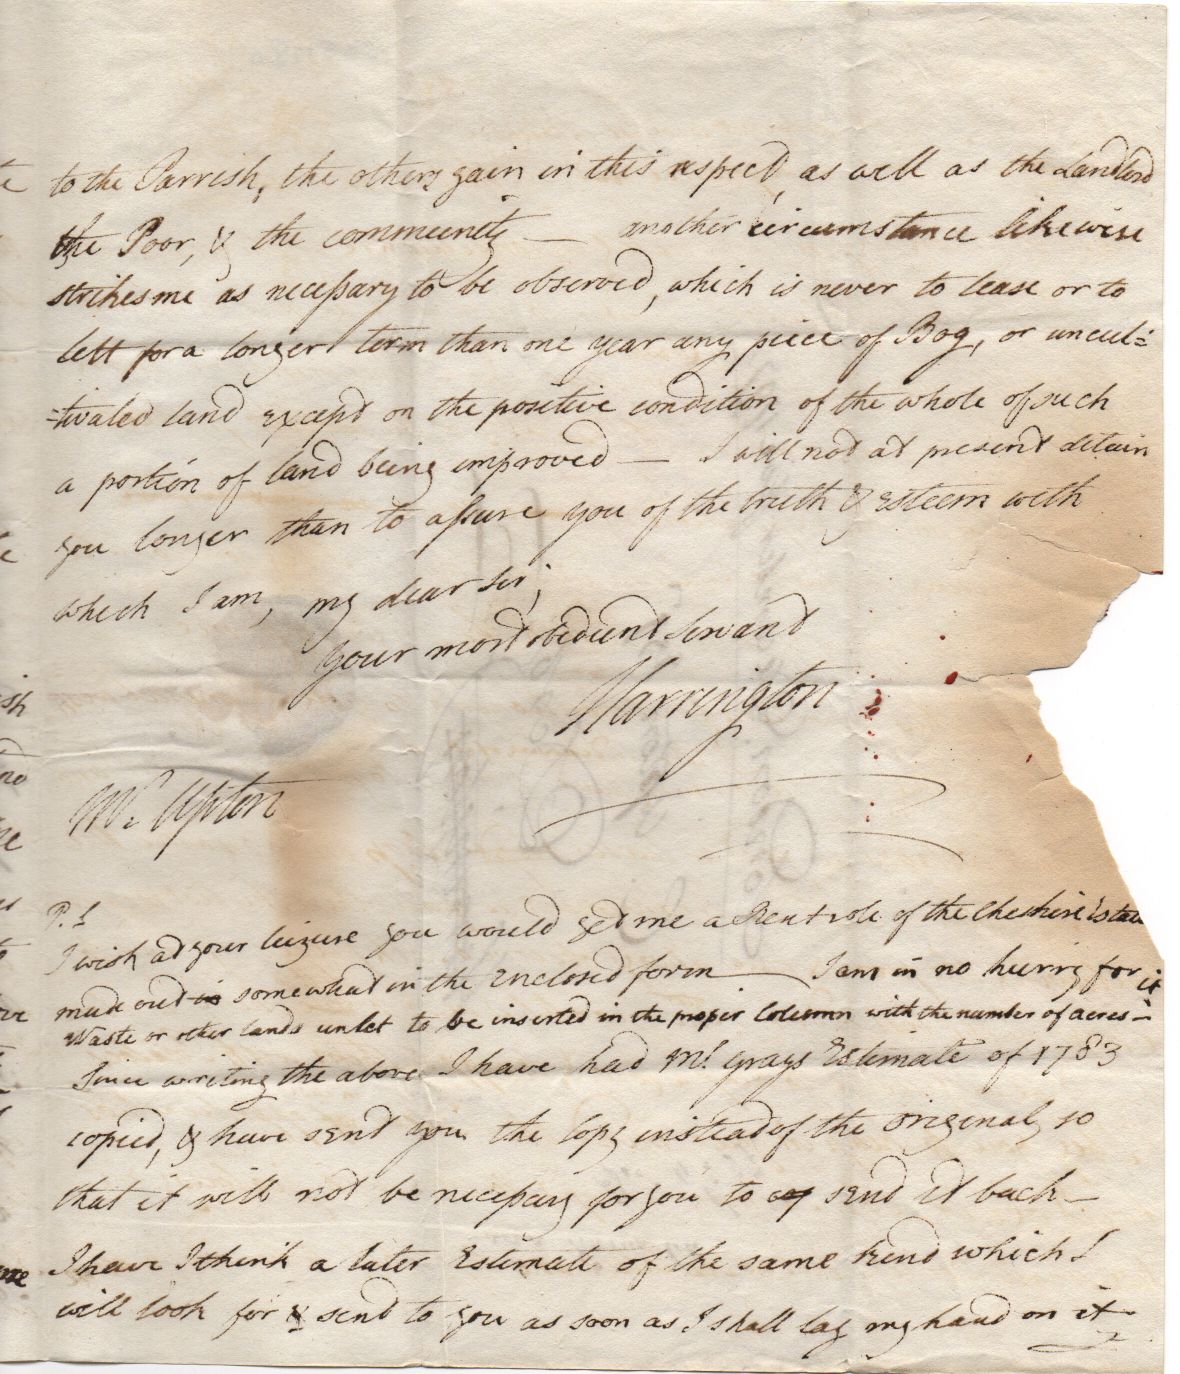 to the Parrish, the others gain in this respect, as well as the Landlord
the Poor, & the community — another circumstance likewise
strikes me as necessary to be observed, which is never to lease or to
lett for a longer term than one year any piece of Bog, or uncul=
=tivated land except on the positive condition of the whole of such
a portion of land being improved — I will not at present detain
you longer than to assure you of the truth & esteem with
which I am, my dear Sir,
your most obedient Servant
Harrington
Mr. Upton
P.S
I wish at your leizure you would get me a Rent role of the Cheshire Estate
made out in somewhat in the enclosed form — I am in no hurry for it
Waste or other lands unlet to be inserted in the proper Column with the number of acres —
Since writing the above I have had Mr. Grays Estimate of 1783
copied, & have sent you the copy instead of the original, so
that it will not be necessary for you to send it back —
I have I think a later Estimate of the same kind which I
will look for & send to you as soon as I shall lay my hand on it